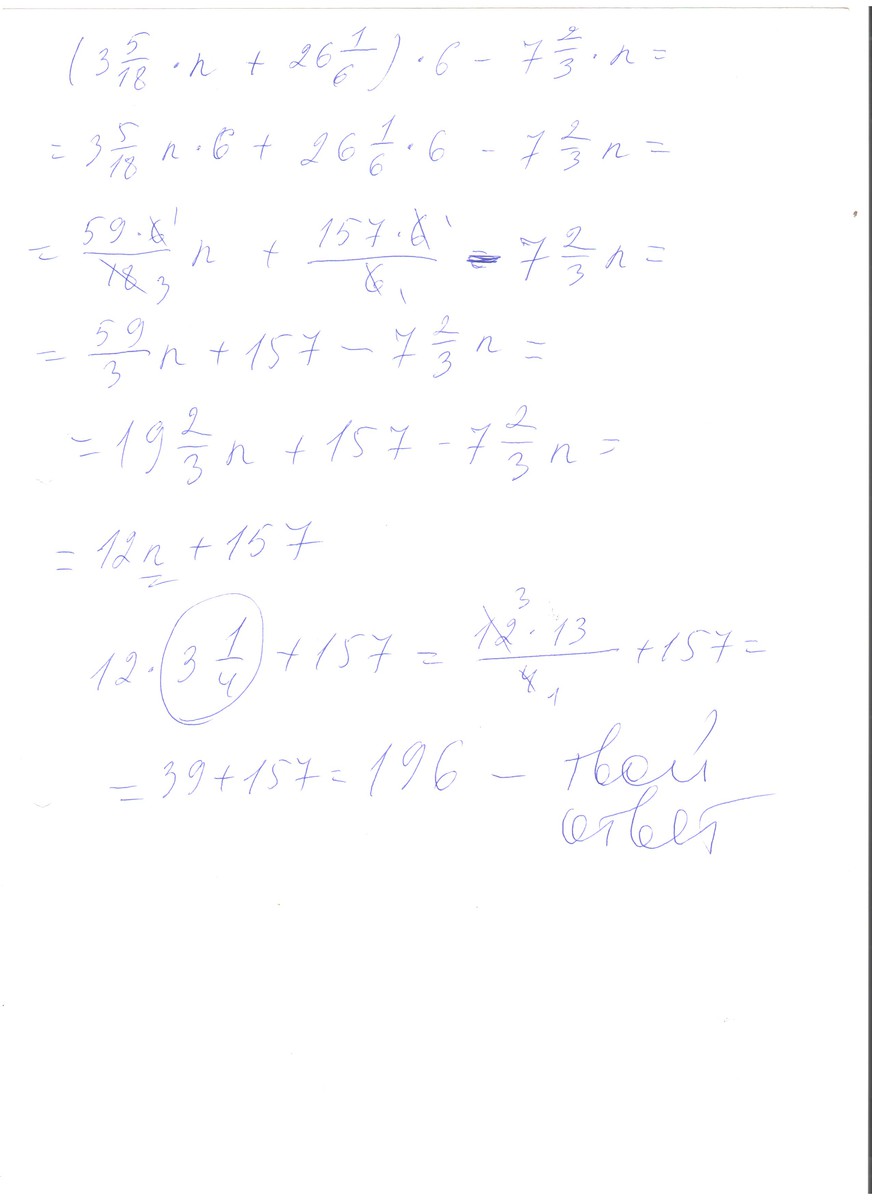 (3 5/18 · n + 26 1/6) · 6 − 7 2/3 · n =
= 3 5/18 n · 6 + 26 1/6 · 6 − 7 2/3 n =
= 59 · 6 1 / 18 3 n + 157 · 6 1 / 6 1 − 7 2/3 n =
= 59/3 n + 157 − 7 2/3 n =
= 19 2/3 n + 157 − 7 2/3 n =
= 12n + 157
12 · 3 1/4 + 157 = 12 3 · 13 / 4 1 + 157 =
= 39 + 157 = 196 − твой
ответ